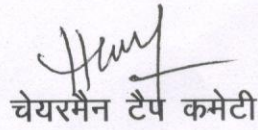 चेयरमैन टैप कमेटी